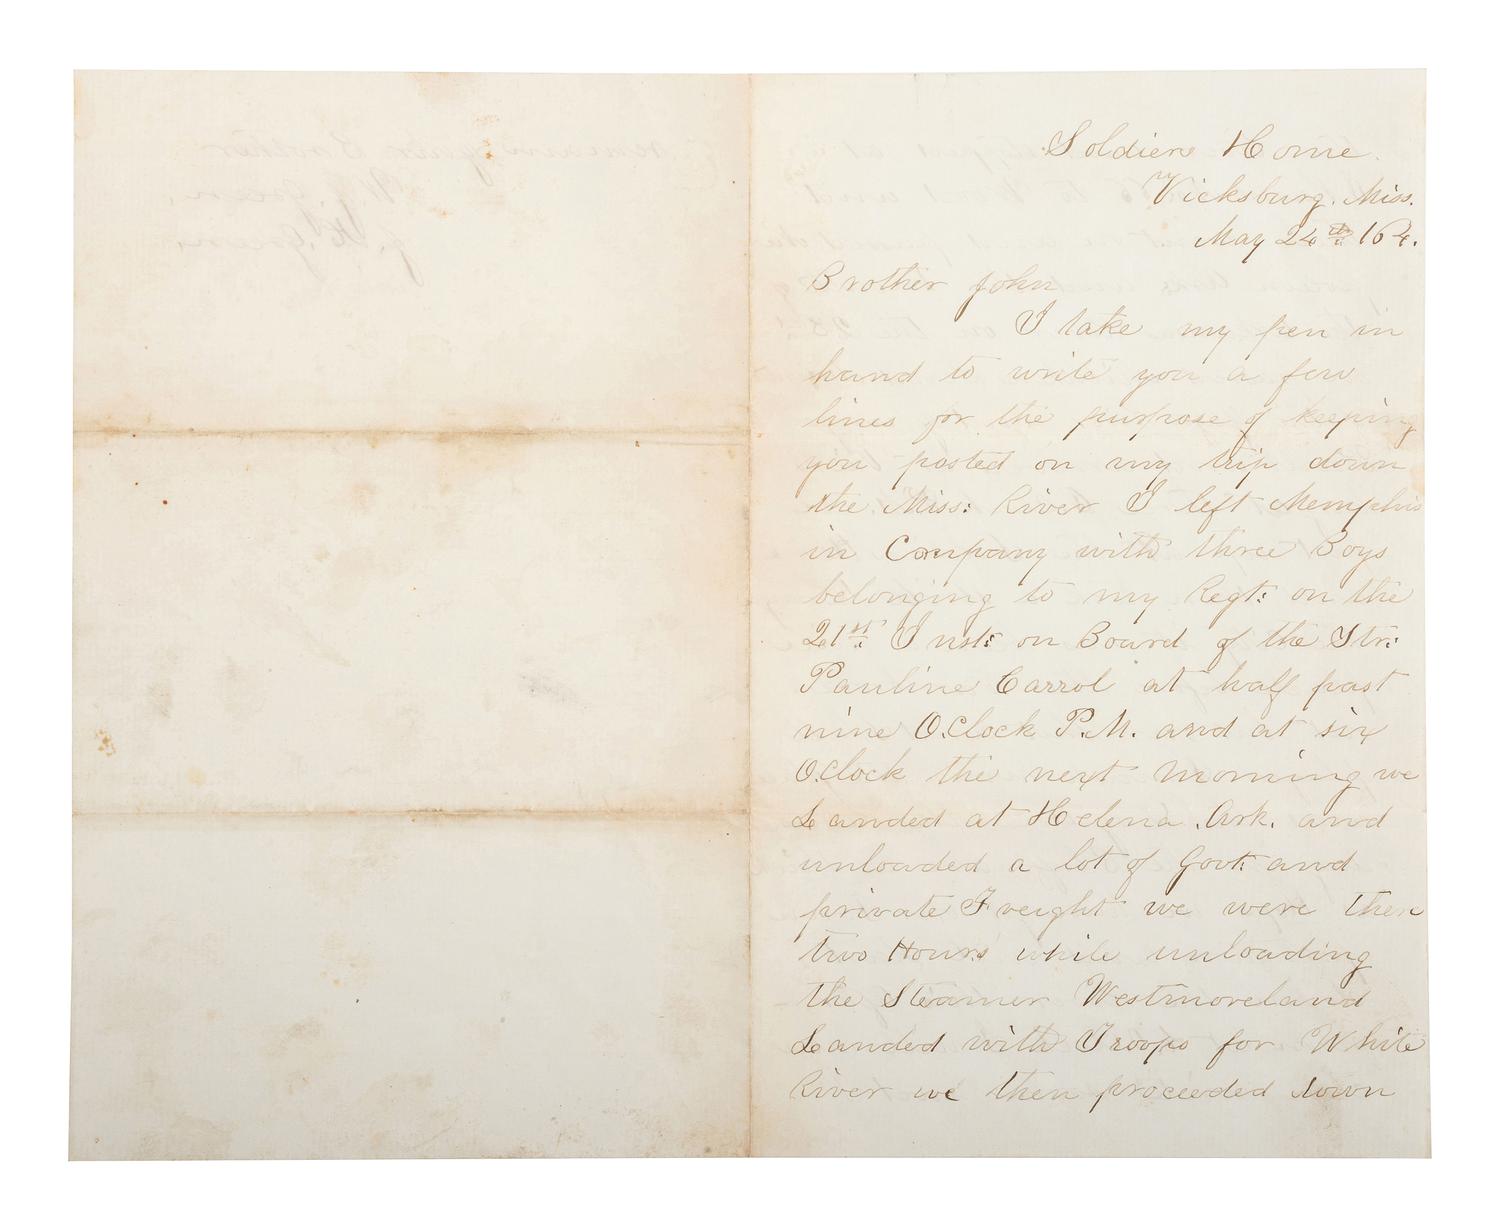 Soldiers Home.
Vicksburg. Miss.
May 24th 164.
Brother John
I take my pen in
hand to write you a few
lines for the purpose of keeping
you posted on my trip down
the Miss: River I left Memphis
in Company with three Boys
belonging to my Regt: on the
21st Inst: on Board of the Str:
Pauline Carrol at half past
nine O.Clock P.M. and at six
O.Clock the next morning we
Landed at Helena Ark. and
unloaded a lot of Govt: and
private Freight we were there
two Hours while unloading
the Steamer Westmoreland
Landed with Troops for White
River we then proceeded down